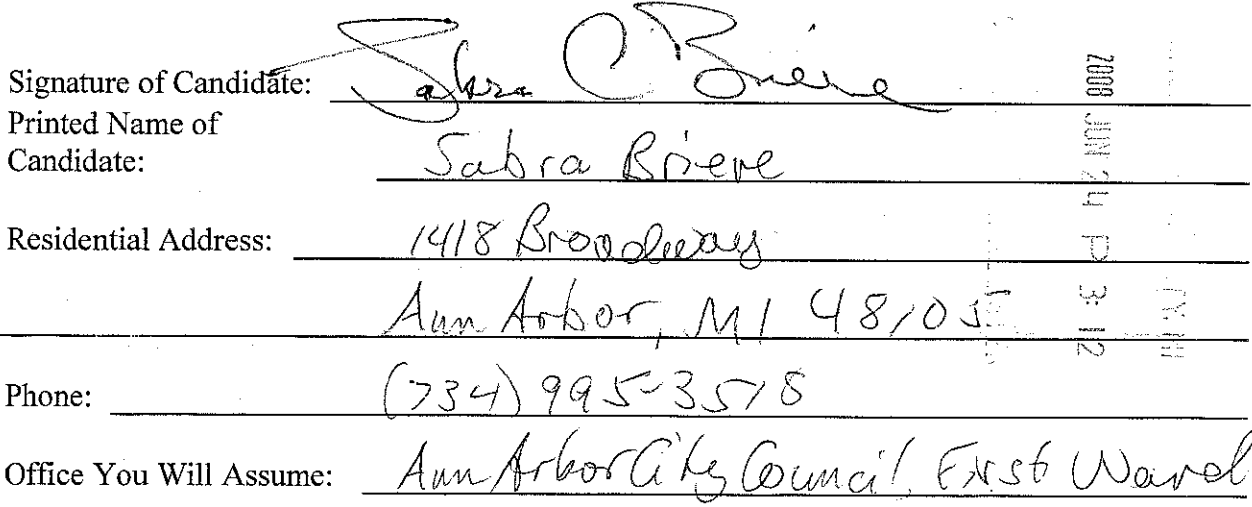 Signature of Candidate: Sabra C Briere
Printed Name of
Candidate: Sabra Briere
Residential Address: 1418 Broadway
Ann Arbor, MI 48105
Phone: (734) 995-3518
Office You Will Assume: Ann Arbor City Council, First Ward
2008 JUN 24 P 3:12